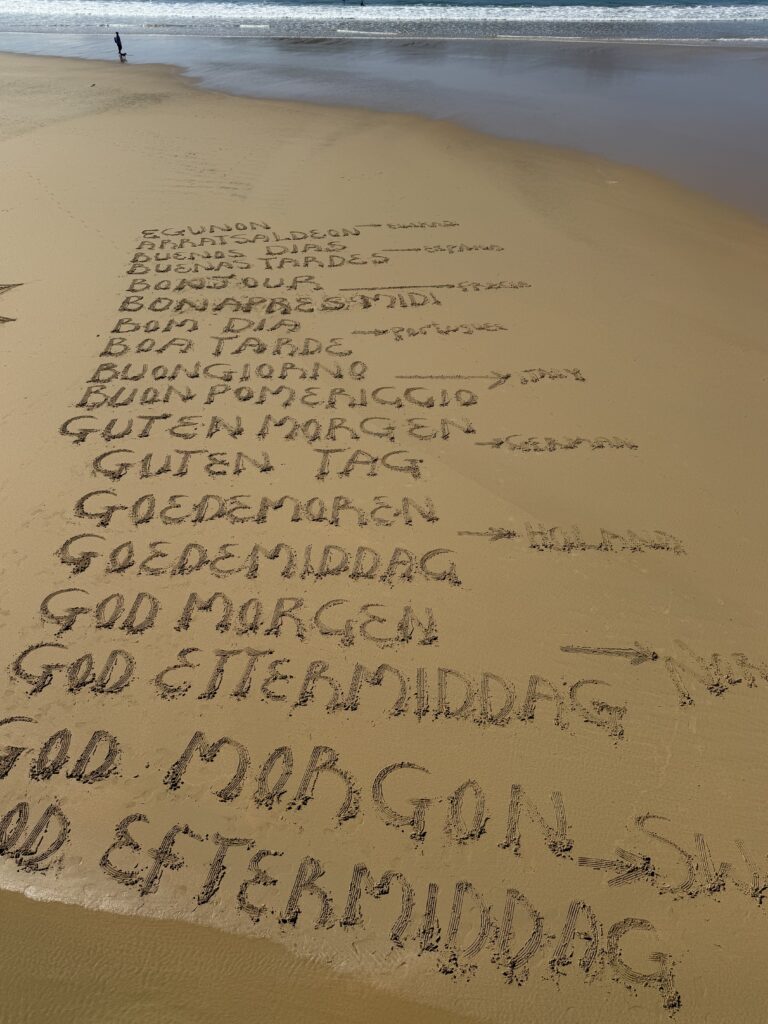 EGUNON
ARRATSALDEON
BUENOS DIAS → ESPAÑA
BUENAS TARDES
BONJOUR
BONAPRES MIDI
BOM DIA
BOA TARDE
BUONGIORNO →
BUON POMERIGGIO
GUTEN MORGEN → GERMAN
GUTEN TAG
GOEDEMOREN → HOLAND
GOEDEMIDDAG
GOD MORGEN →
GOD ETTERMIDDAG
GOD MORGON → SW
OD EFTERMIDDAG